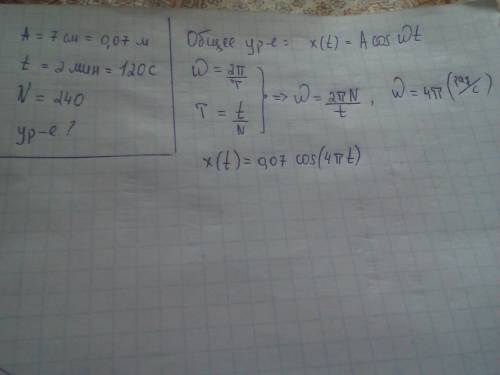 A = 7 см = 0,07 м
t = 2 мин = 120 с
N = 240
ур-е ?
Общее ур-е: x(t) = A cos ωt
ω = 2π/T
T = t/N
} => ω = 2πN/t , ω = 4π (рад/с)
x(t) = 0,07 cos(4πt)